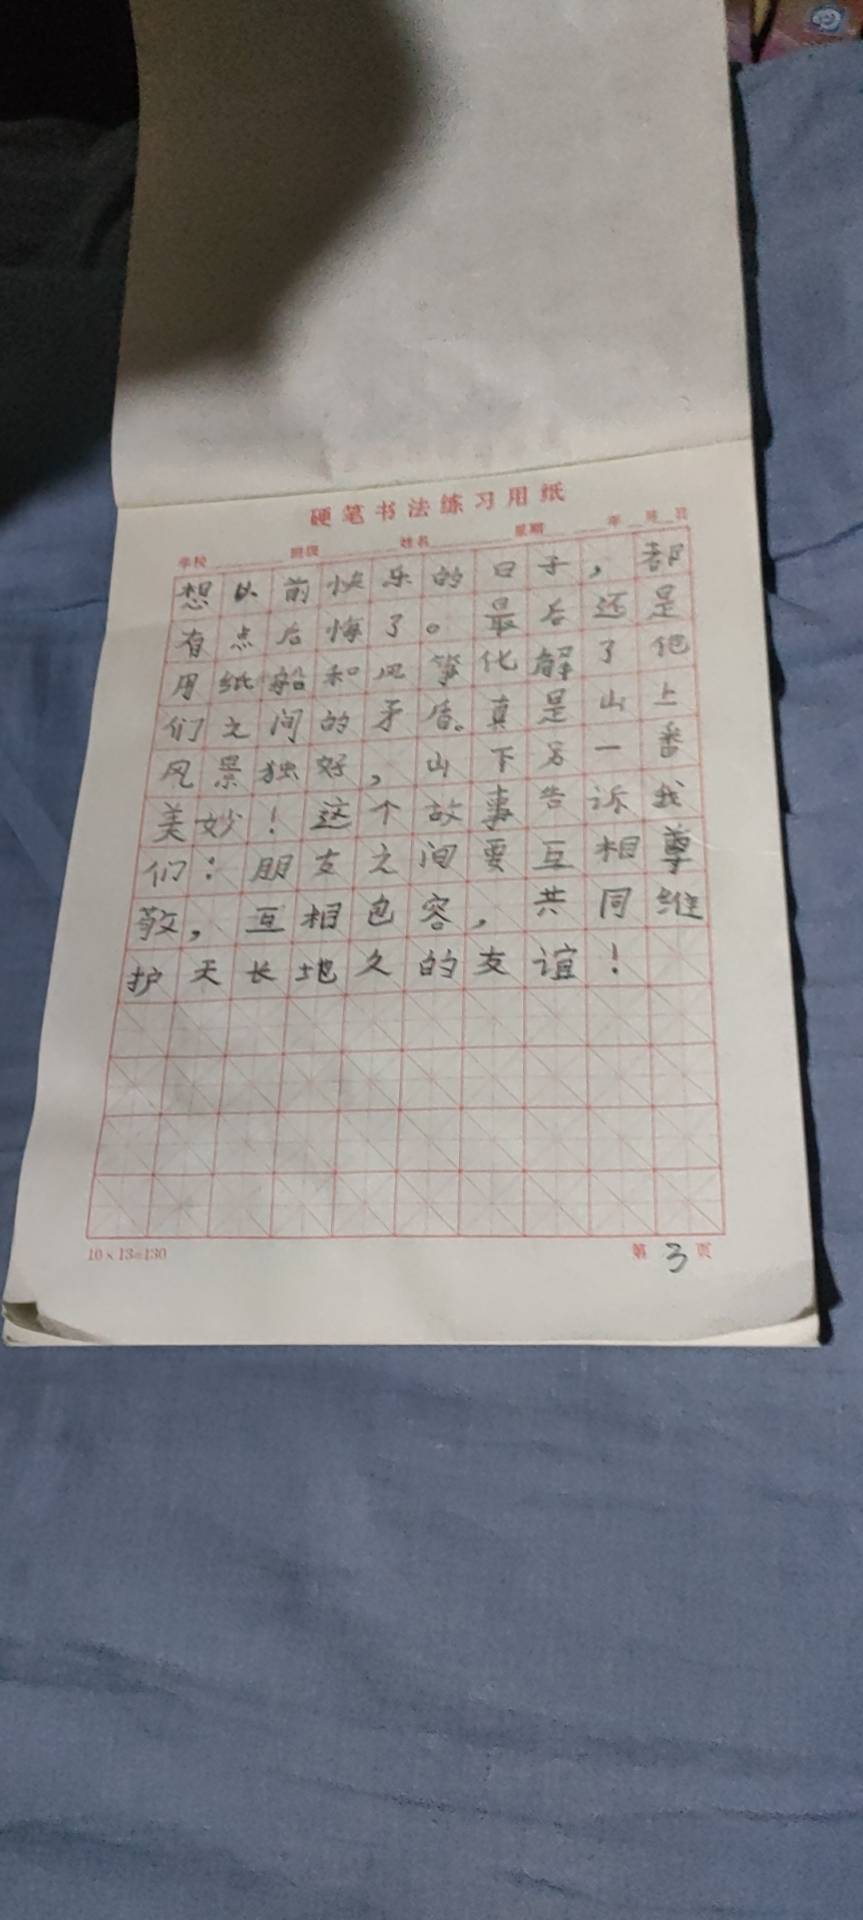 硬笔书法练习用纸
学校 班级 姓名 星期 年 月 日
想以前快乐的日子，都
有点后悔了。最后还是
用纸船和风筝化解了他
们之间的矛盾。真是山上
风景独好，山下另一番
美妙！这个故事告诉我
们：朋友之间要互相尊
敬，互相包容，共同维
护天长地久的友谊！
10×13=130
第 3 页